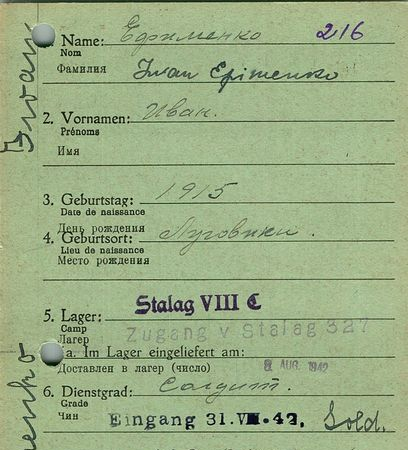 Name: Ефименко 216
Nom
Фамилия Iwan Efimenko
2. Vornamen: Иван.
Prénoms
Имя
3. Geburtstag: 1915
Date de naissance
День рождения
4. Geburtsort: Луговики.
Lieu de naissance
Место рождения
Stalag VIII C
5. Lager:
Camp
Zugang v Stalag 327
Лагерь
a. Im Lager eingeliefert am:
Доставлен в лагерь (число) AUG. 1942
6. Dienstgrad: Солдат.
Grade
Чин Eingang 31. VII. 42. Sold.
Iwan